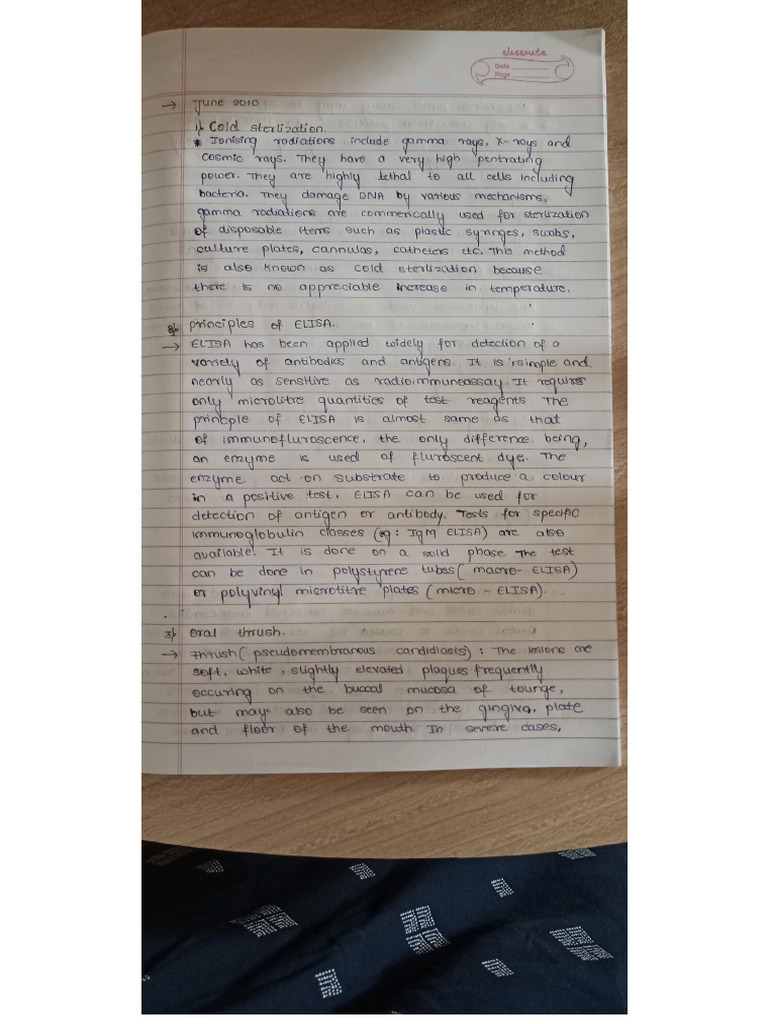 classmate
Date
Page
→ June 2010
1) Cold sterlization.
* Ionising radiations include gamma rays, X-rays and
cosmic rays. They have a very high pentrating
power. They are highly lethal to all cells including
bacteria. They damage DNA by various mechanisms,
gamma radiations are commerically used for sterlization
of disposable items such as plastic syringes, swabs,
culture plates, cannulas, catheters etc. This method
is also known as cold sterlization because
there is no appreciable increase in temperature.
2) principles of ELISA.
→ ELISA has been applied widely for detection of a
variety of antibodies and antigens. It is simple and
nearly as sensitive as radioimmunoassay. It requires
only microlitre quantities of test reagents. The
principle of ELISA is almost same as that
of immunofluroscence, the only difference being,
an enzyme is used of fluroscent dye. The
enzyme act on substrate to produce a colour
in a positive test. ELISA can be used for
detection of antigen or antibody. Tests for specific
immunoglobulin classes (eg: IgM ELISA) are also
available. It is done on a solid phase. The test
can be done in polystyrene tubes (macro-ELISA)
or polyvinyl microtitre plates (micro - ELISA).
3) oral thrush.
→ Thrush (pseudomembranous candidiasis) : The lesions are
soft, white, slightly elevated plaques frequently
occuring on the buccal mucosa of tounge,
but may also be seen on the gingiva, plate
and floor of the mouth In severe cases,